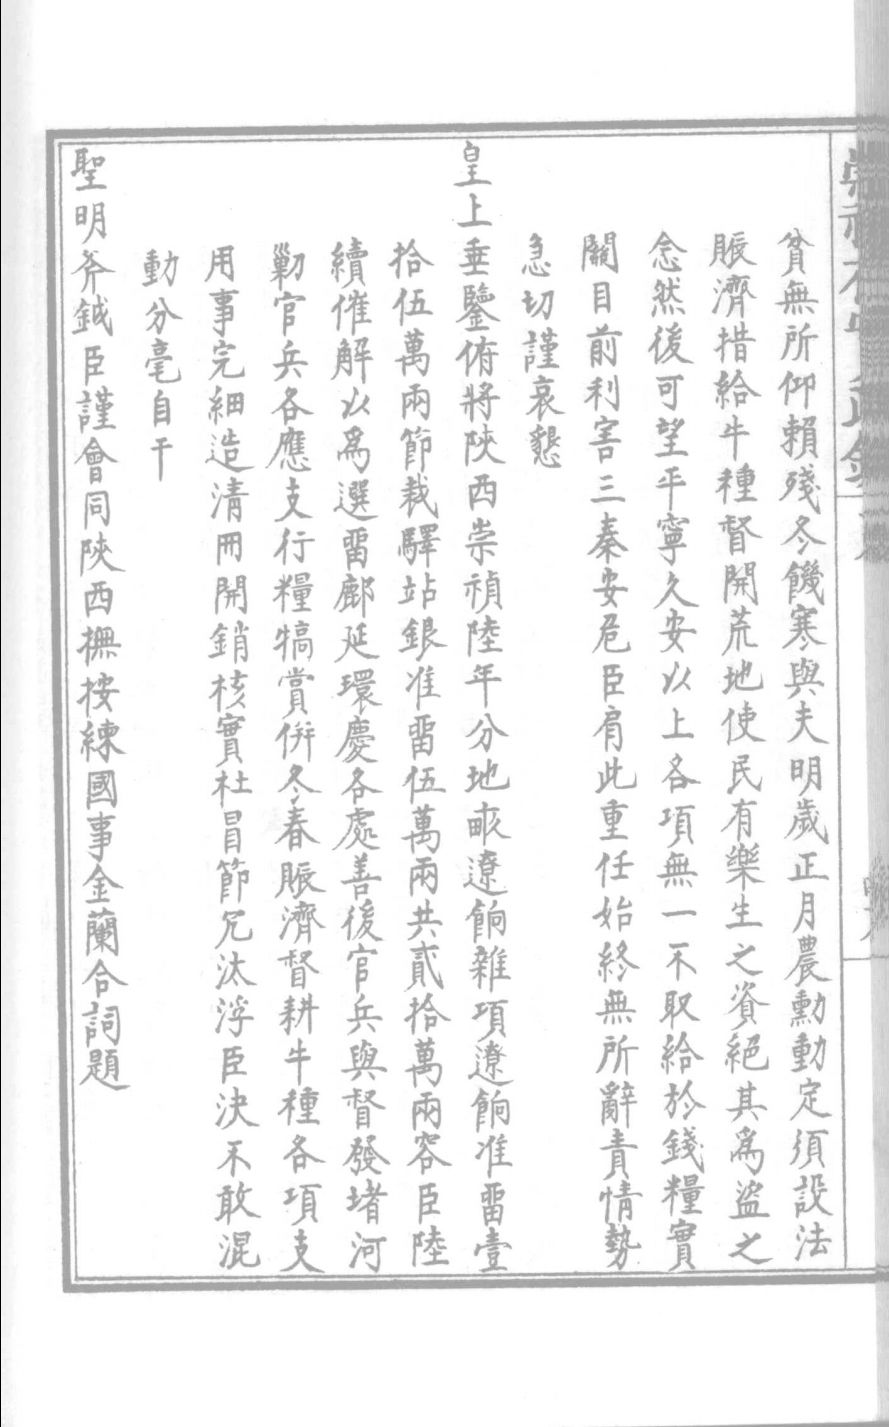 貧無所仰賴殘冬饑寒與夫明歲正月農動動定須設法
賬濟措給牛種督開荒地使民有樂生之資絕其為盜之
念然後可望平寧久安以上各項無一不取給於錢糧實
關目前利害三秦安危臣肩此重任始終無所辭責情勢
急切謹哀懇
皇上垂鑒俯將陝西崇禎陸年分地畝遼餉雜項遼餉准畱壹
拾伍萬兩節裁驛站銀准畱伍萬兩共貳拾萬兩容臣陸
續催解以為選畱鄜延環慶各處善後官兵與督發堵河
勦官兵各應支行糧犒賞併冬春賬濟督耕牛種各項支
用事完細造清冊開銷核實杜冒節冗汰浮臣決不敢混
動分毫自干
聖明斧鉞臣謹會同陝西撫按練國事金蘭合詞題